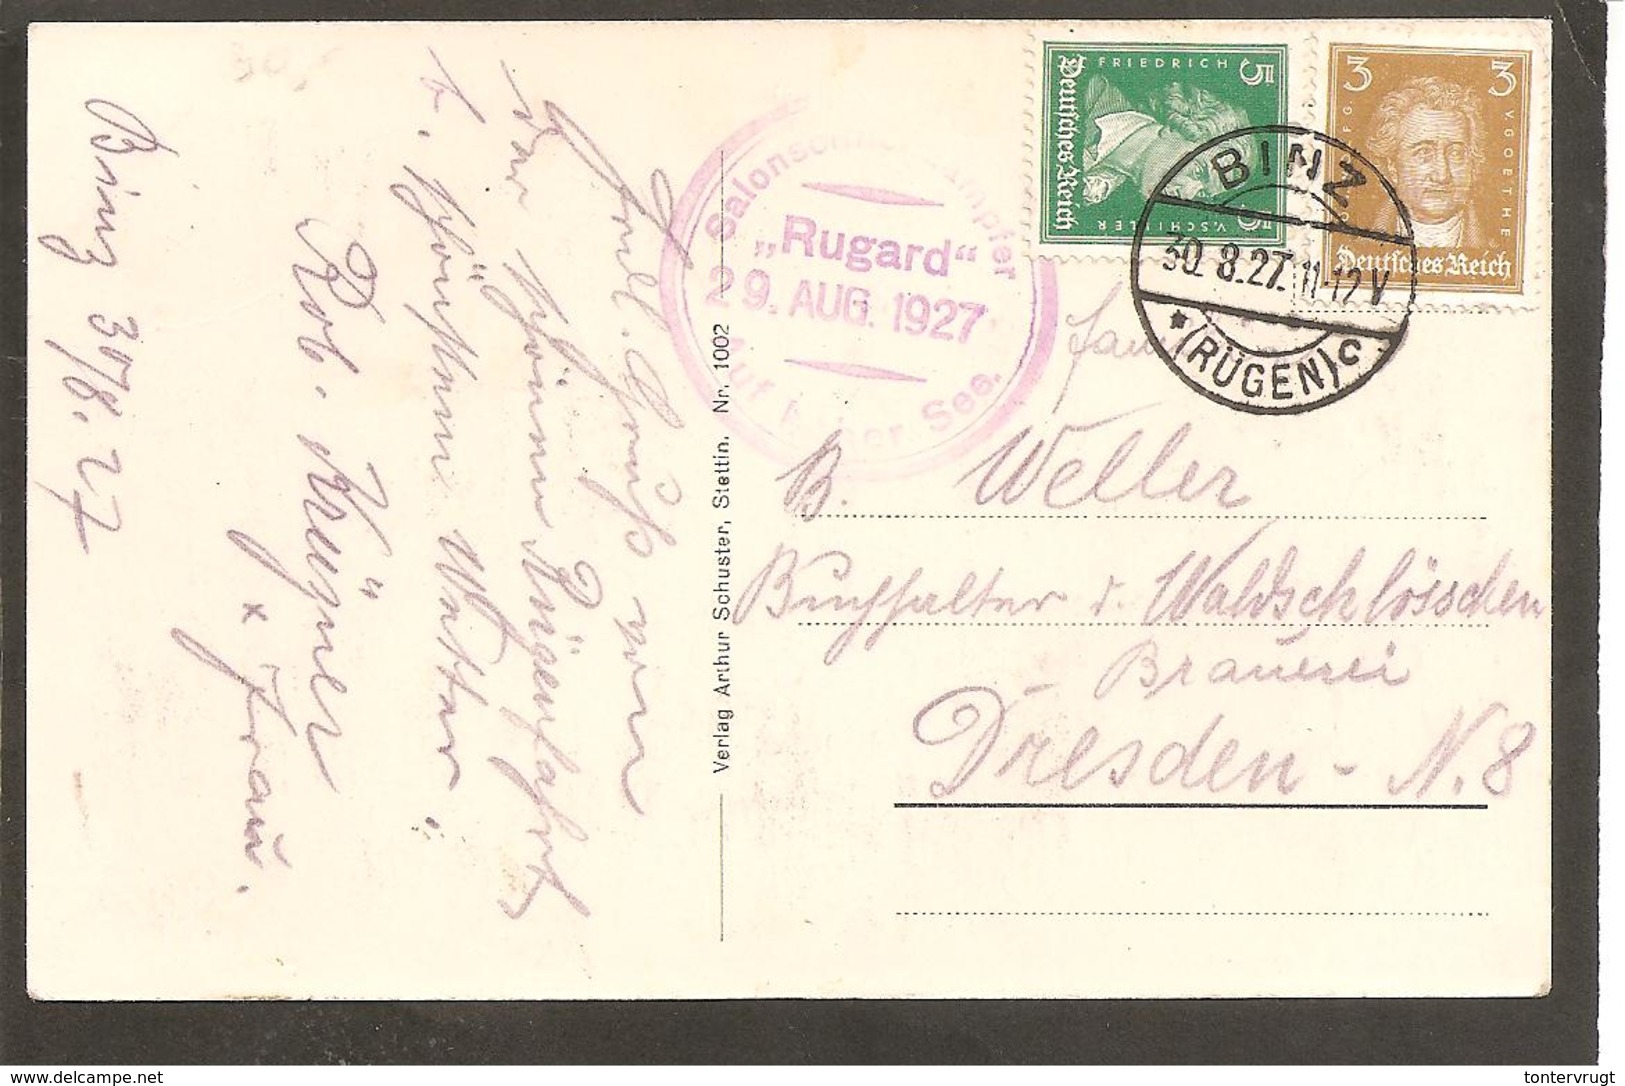 Fredl. Grüße von
der schönen Rügenfahrt
b. schönstem Wetter.
Rob. Krügner
x Frau.
Binz 30/8.27
Verlag Arthur Schuster, Stettin. Nr. 1002
Salonschnelldampfer
„Rugard“
29. AUG. 1927
Auf hoher See.
FRIEDRICH
5 5
Deutsches Reich
V. SCHILLER
3 3
V GOETHE
Deutsches Reich
BINZ
30.8.27. 11-12 V
* (RÜGEN) c
Fam
B. Weller
Buchhalter d. Waldschlösschen
Brauerei
Dresden - N. 8
www.delcampe.net
tontervrugt